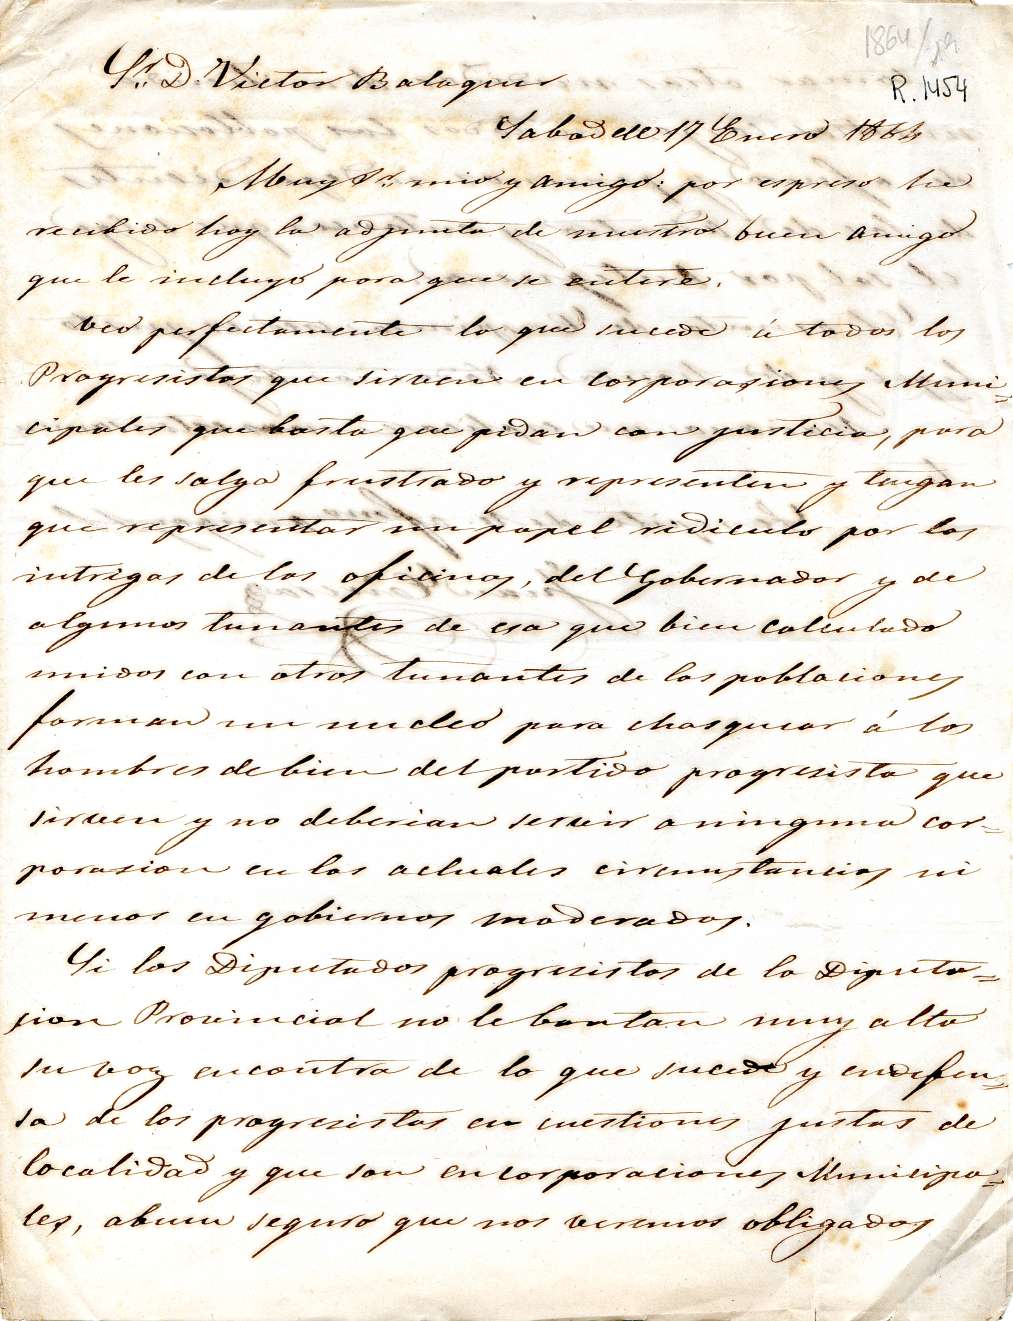 1864/
R. 1454
Sr. D. Victor Balaguer
Sabadell 17 Enero 1864
Muy Sr. mio y amigo: por espreso he
recibido hoy la adjunta de nuestro buen amigo
que le incluyo para que se entere.
Veo perfectamente lo que sucede á todos los
Progresistas que sirven en corporasiones Muni=
cipales que basta que pidan con justicia, para
que les salga frustrado y representen y tengan
que representar un papel ridiculo por las
intrigas de las oficinas, del Gobernador y de
algunos tunantes de esa que bien calculado
unidos con otros tunantes de las poblaciones
forman un nucleo para chasquear á los
hombres de bien del partido progresista que
sirven y no deberian servir a ninguna cor=
porasion en las actuales circunstancias ni
menos en gobiernos moderados.
Si los Diputados progresistas de la Diputa=
sion Provincial no lebantan muy alto
su voz encontra de lo que sucede y endefen=
sa de los progresistas en cuestiones justas de
localidad y que son en corporaciones Municipa=
les, abuen seguro que nos veremos obligados